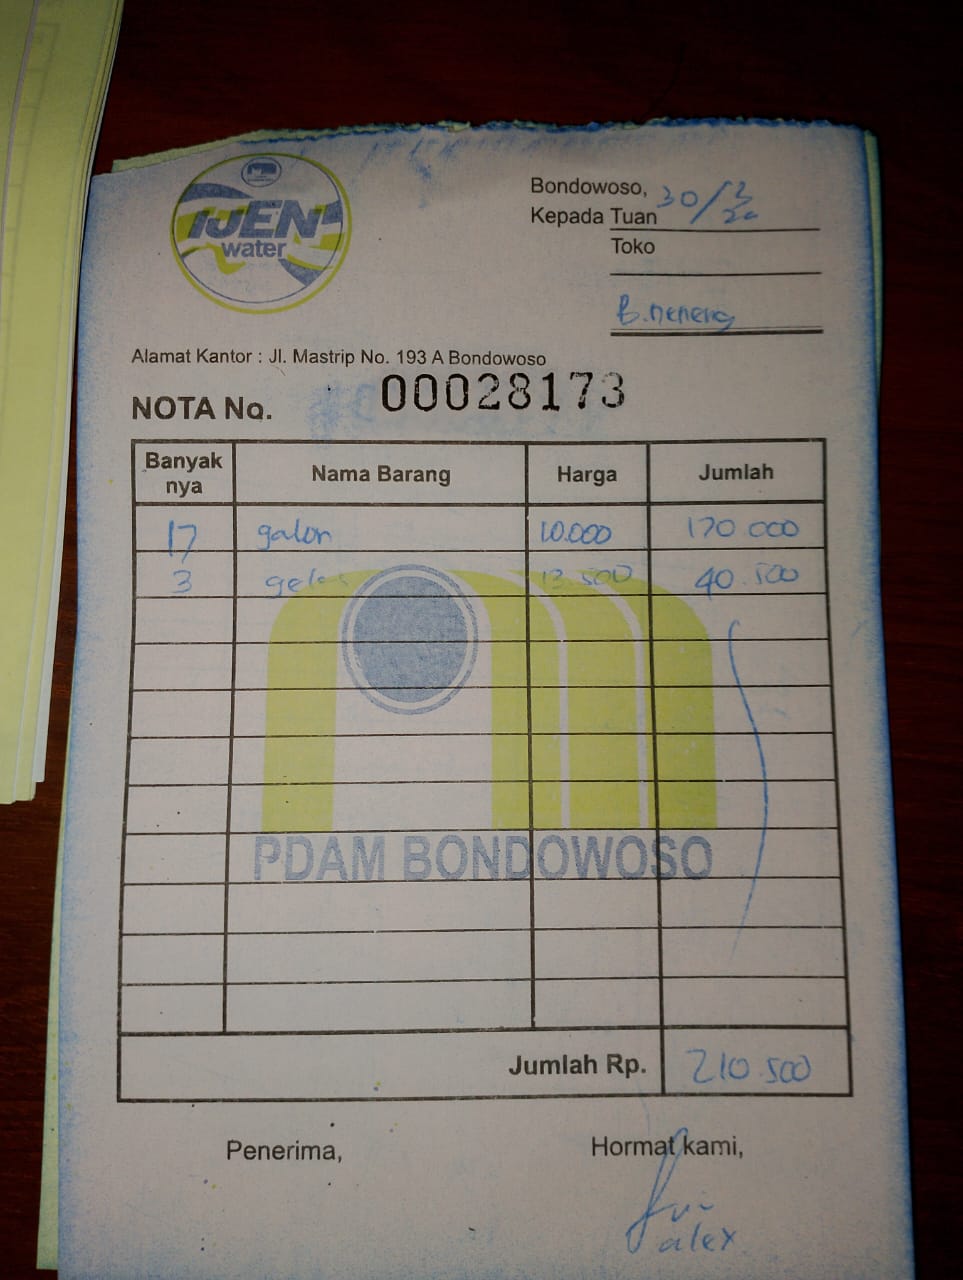 IJEN
water
Bondowoso, 30/
Kepada Tuan
Toko
B. neneng
Alamat Kantor : Jl. Mastrip No. 193 A Bondowoso
NOTA No. 00028173
Banyak nya Nama Barang Harga Jumlah
17 galon 10.000 170 000
3 gelas 13.500 40.500
PDAM BONDOWOSO
Jumlah Rp. 210.500
Penerima, Hormat kami,
alex